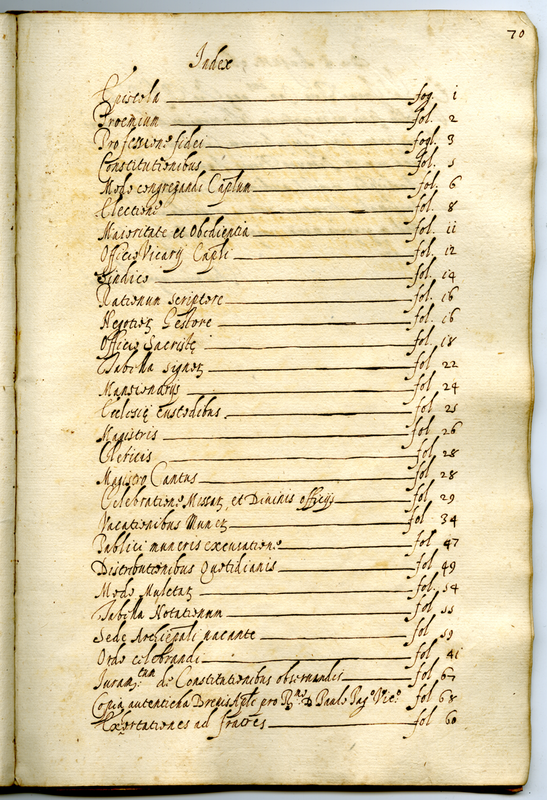 70
Index
Epistola fog. 1
Proemium fol. 2
Professione fidei fogl. 3
Constitutionibus fol. 5
Modo congregandi Caplum fol. 6
Electione fol. 8
Maioritate et Obedientia fol. 11
Officio Vicarij Capli fol. 12
Sindico fol. 14
Rationum Scriptore fol. 16
Negotioꝝ Gestore fol. 16
Officio Sacristę fol. 18
Tabella signoꝝ fol 22
Mansionarijs fol 24
Ecclesię custodibus fol 25
Magistris fol 26
Clericis fol 28
Magistro Cantus fol 28
Celebratione Missaꝝ, et Diuinis officijs fol 29
Vacationibus Muneꝝ fol 34
Publici muneris excusatione fol 47
Distributionibus Quotidianis fol 49
Modo Mulctaꝝ fol 54
Tabella Notationum fol 55
Sede Archiepali uacante fol 59
Ordo celebrandi fol 41
Iuramtum de Constitutionibus obseruandis fol 67
Copia autenticha pro Rmo D Paulo fol 68
Exhortationes ad fratres fol 60